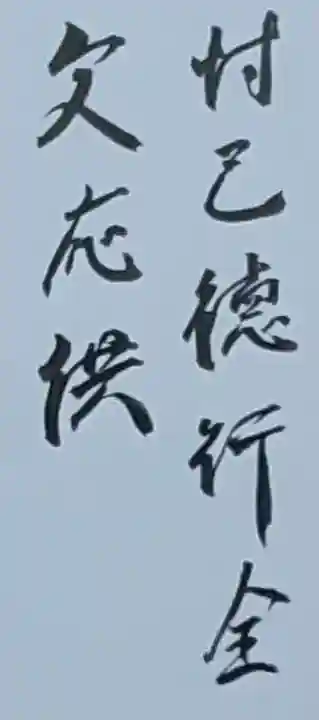 忖己德行全
欠应供